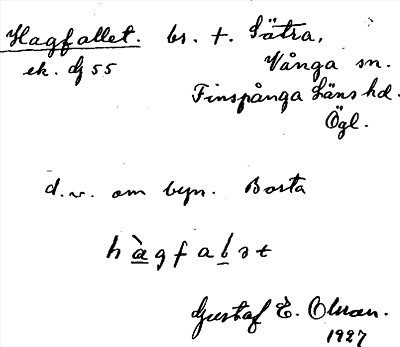 Hagfallet. bs. t. Sätra,
ek. dj 55 Vånga sn.
Finspånga Läns hd.
Ögl.
d. v. om byn. Borta
h à g f a l s t
Gustaf E. Olsson.
1927